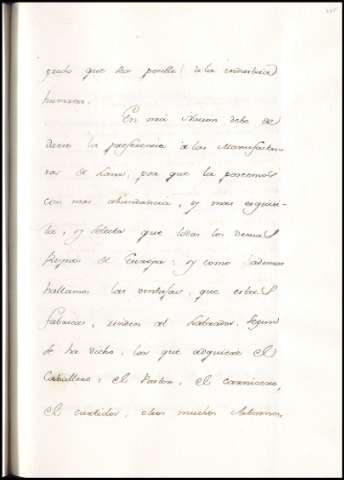 grado que sea posible à la industria
humana.
En mi Nacion debe ce
derse la preferencia à las Manufactu
ras de Lana, por que la poseemos
con mas abundancia, y mas exquisi
ta, y selecta que todos los demas
Reynos de Europa: y como ademas
hallamos las ventajas, que estas
fabricas, rinden al Labrador, segun
se ha dicho, las que adquiere el
Caballero, el Pastor, el carnicero,
el curtidor, otros muchos Artesanos,